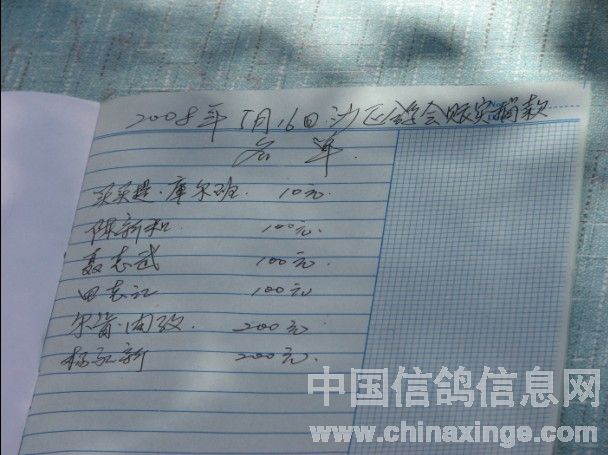 2008年5月16日沙区鸽会赈灾捐款
名单
买买提·库尔班 10元
陈新和 100元
聂志武 100元
田志江 100元
尔肯·肉孜 200元
杨 新 200元
中国信鸽信息网
www.chinaxinge.com